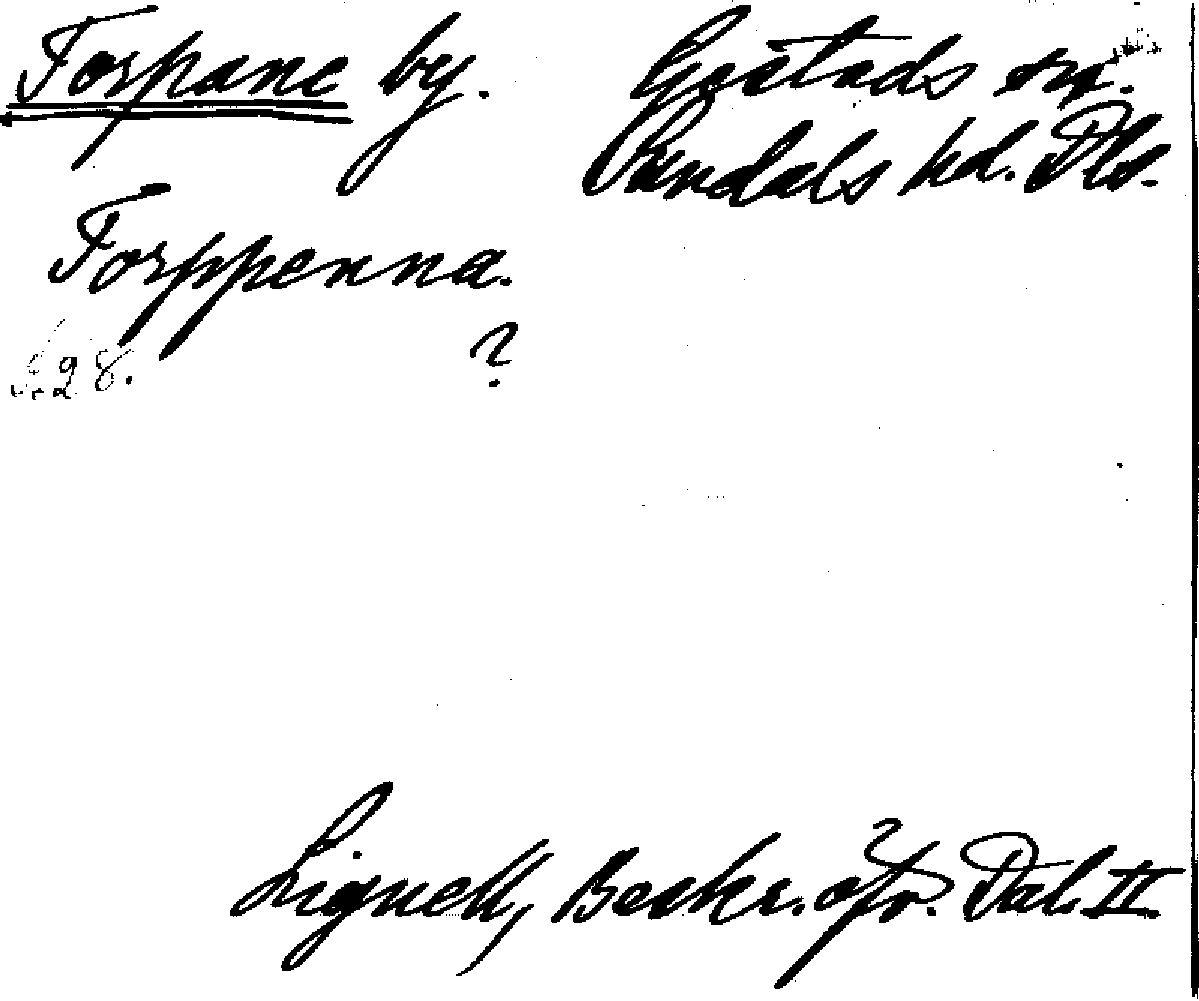 Torpane by. Gestads sn.
Sundals hd. Dls.
Torppenna.
28.
?
Lignell, Beskr. öfv. Dal. II.